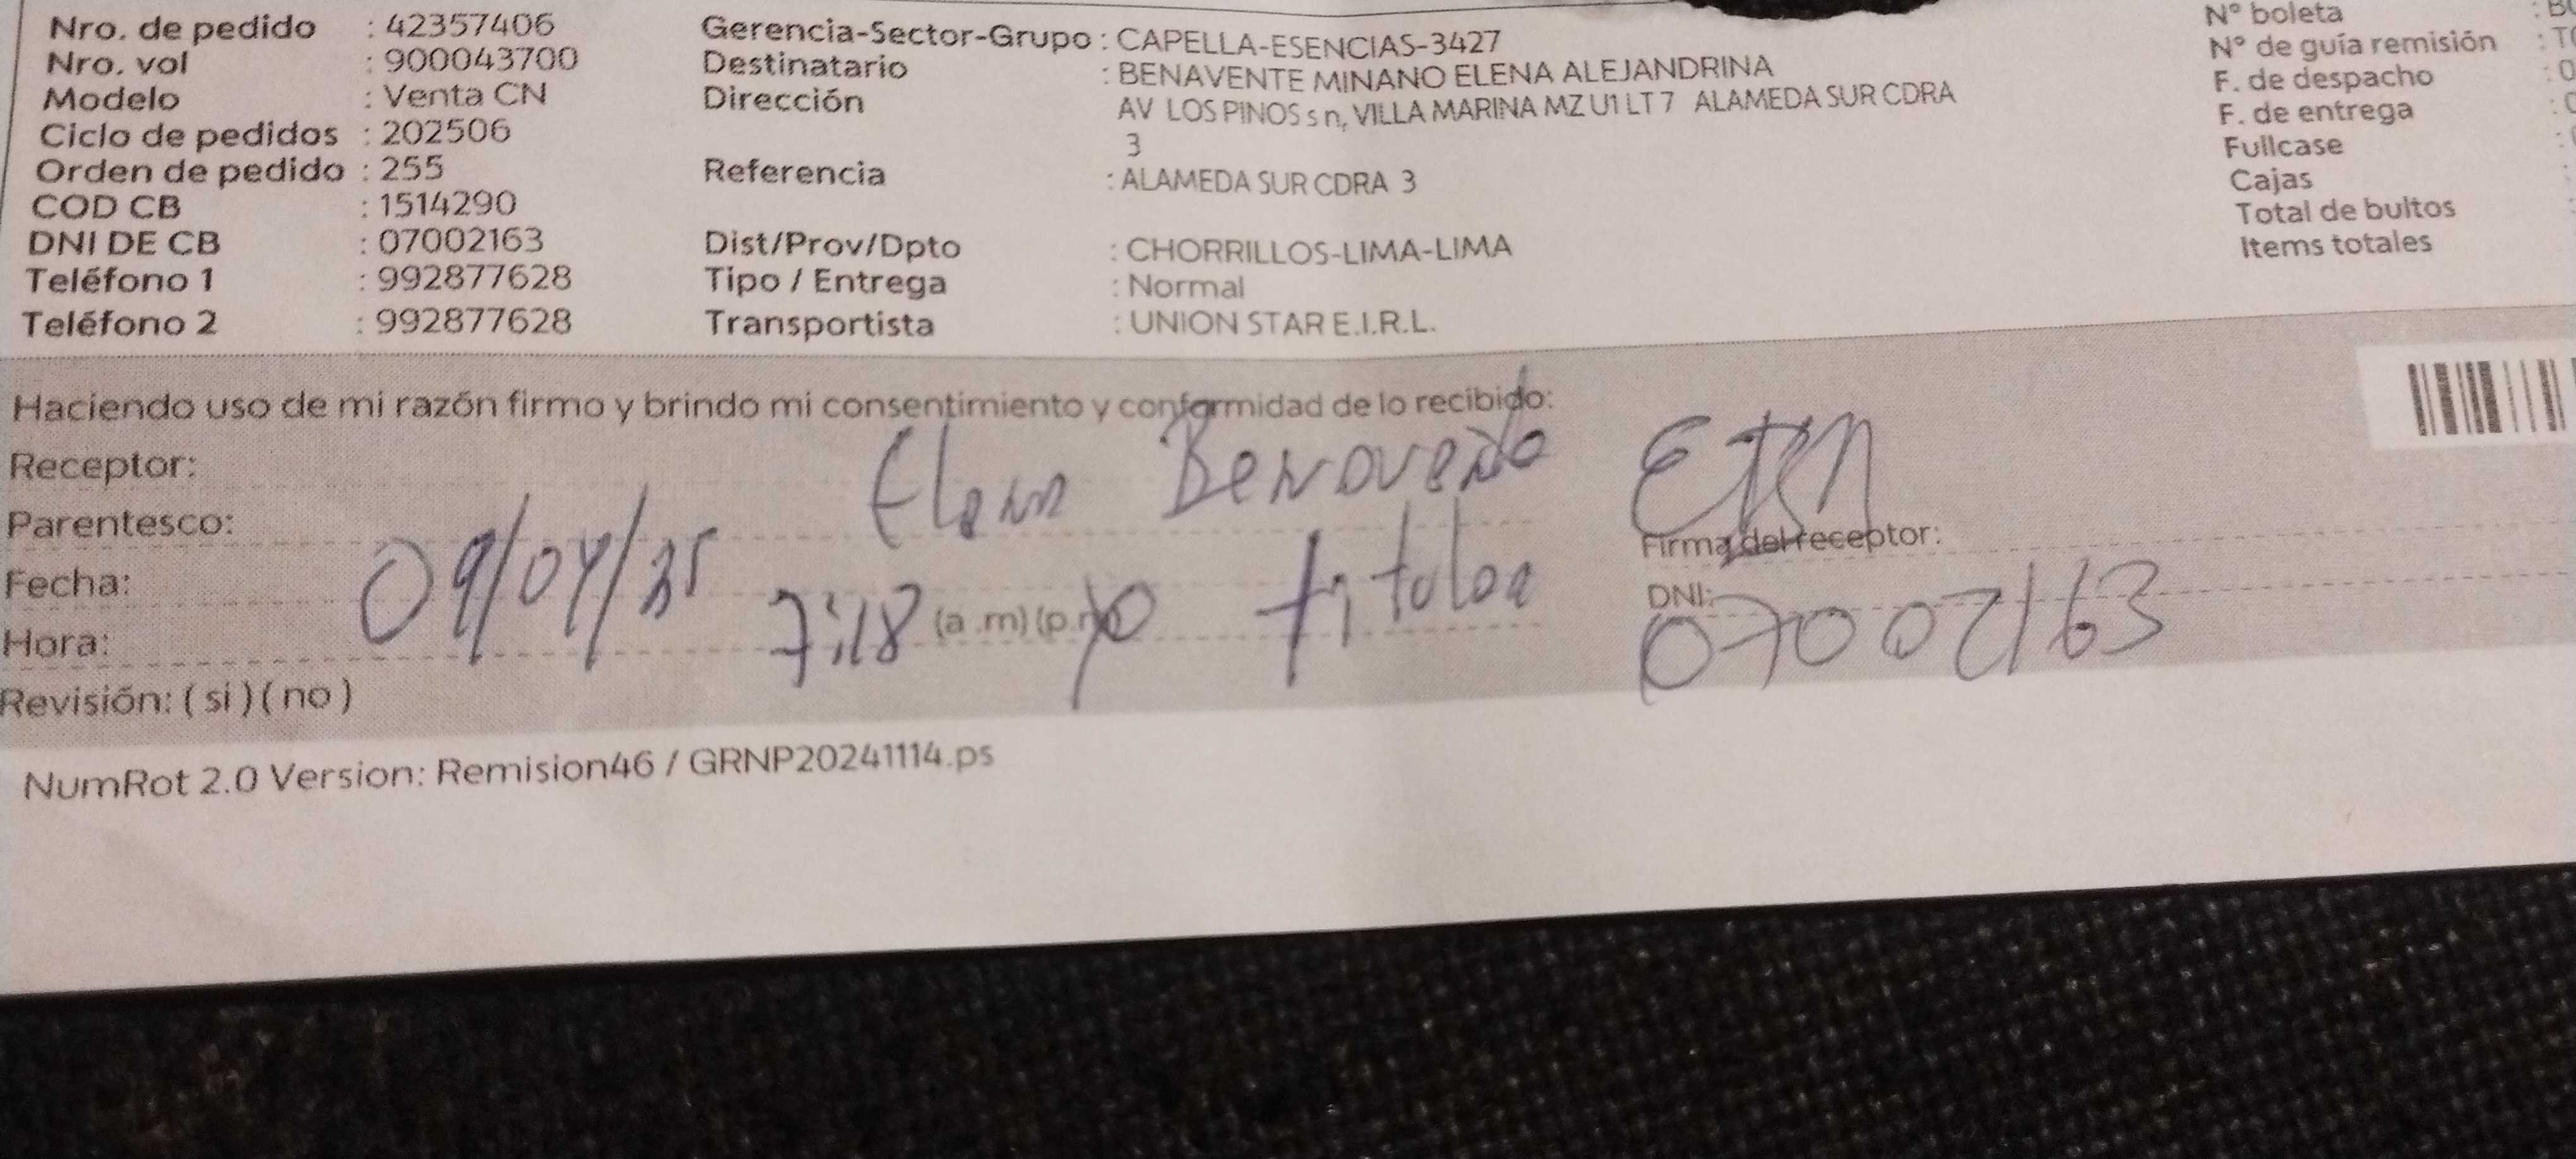 Nro. de pedido : 42357406
Nro. vol : 900043700
Modelo : Venta CN
Ciclo de pedidos : 202506
Orden de pedido : 255
COD CB : 1514290
DNI DE CB : 07002163
Teléfono 1 : 992877628
Teléfono 2 : 992877628
Gerencia-Sector-Grupo : CAPELLA-ESENCIAS-3427
Destinatario : BENAVENTE MINANO ELENA ALEJANDRINA
Dirección AV LOS PINOS s n, VILLA MARINA MZ U1 LT 7 ALAMEDA SUR CDRA
3
Referencia : ALAMEDA SUR CDRA 3
Dist/Prov/Dpto : CHORRILLOS-LIMA-LIMA
Tipo / Entrega : Normal
Transportista : UNION STAR E.I.R.L.
N° boleta
N° de guía remisión
F. de despacho
F. de entrega
Fullcase
Cajas
Total de bultos
Items totales
Haciendo uso de mi razón firmo y brindo mi consentimiento y conformidad de lo recibido:
Receptor: Elena
Parentesco:
Firma del receptor:
Fecha: 09/04/
DNI: 07002163
Hora: 7:18 (a .m) (p.m)
Revisión: ( si ) ( no )
NumRot 2.0 Version: Remision46 / GRNP20241114.ps